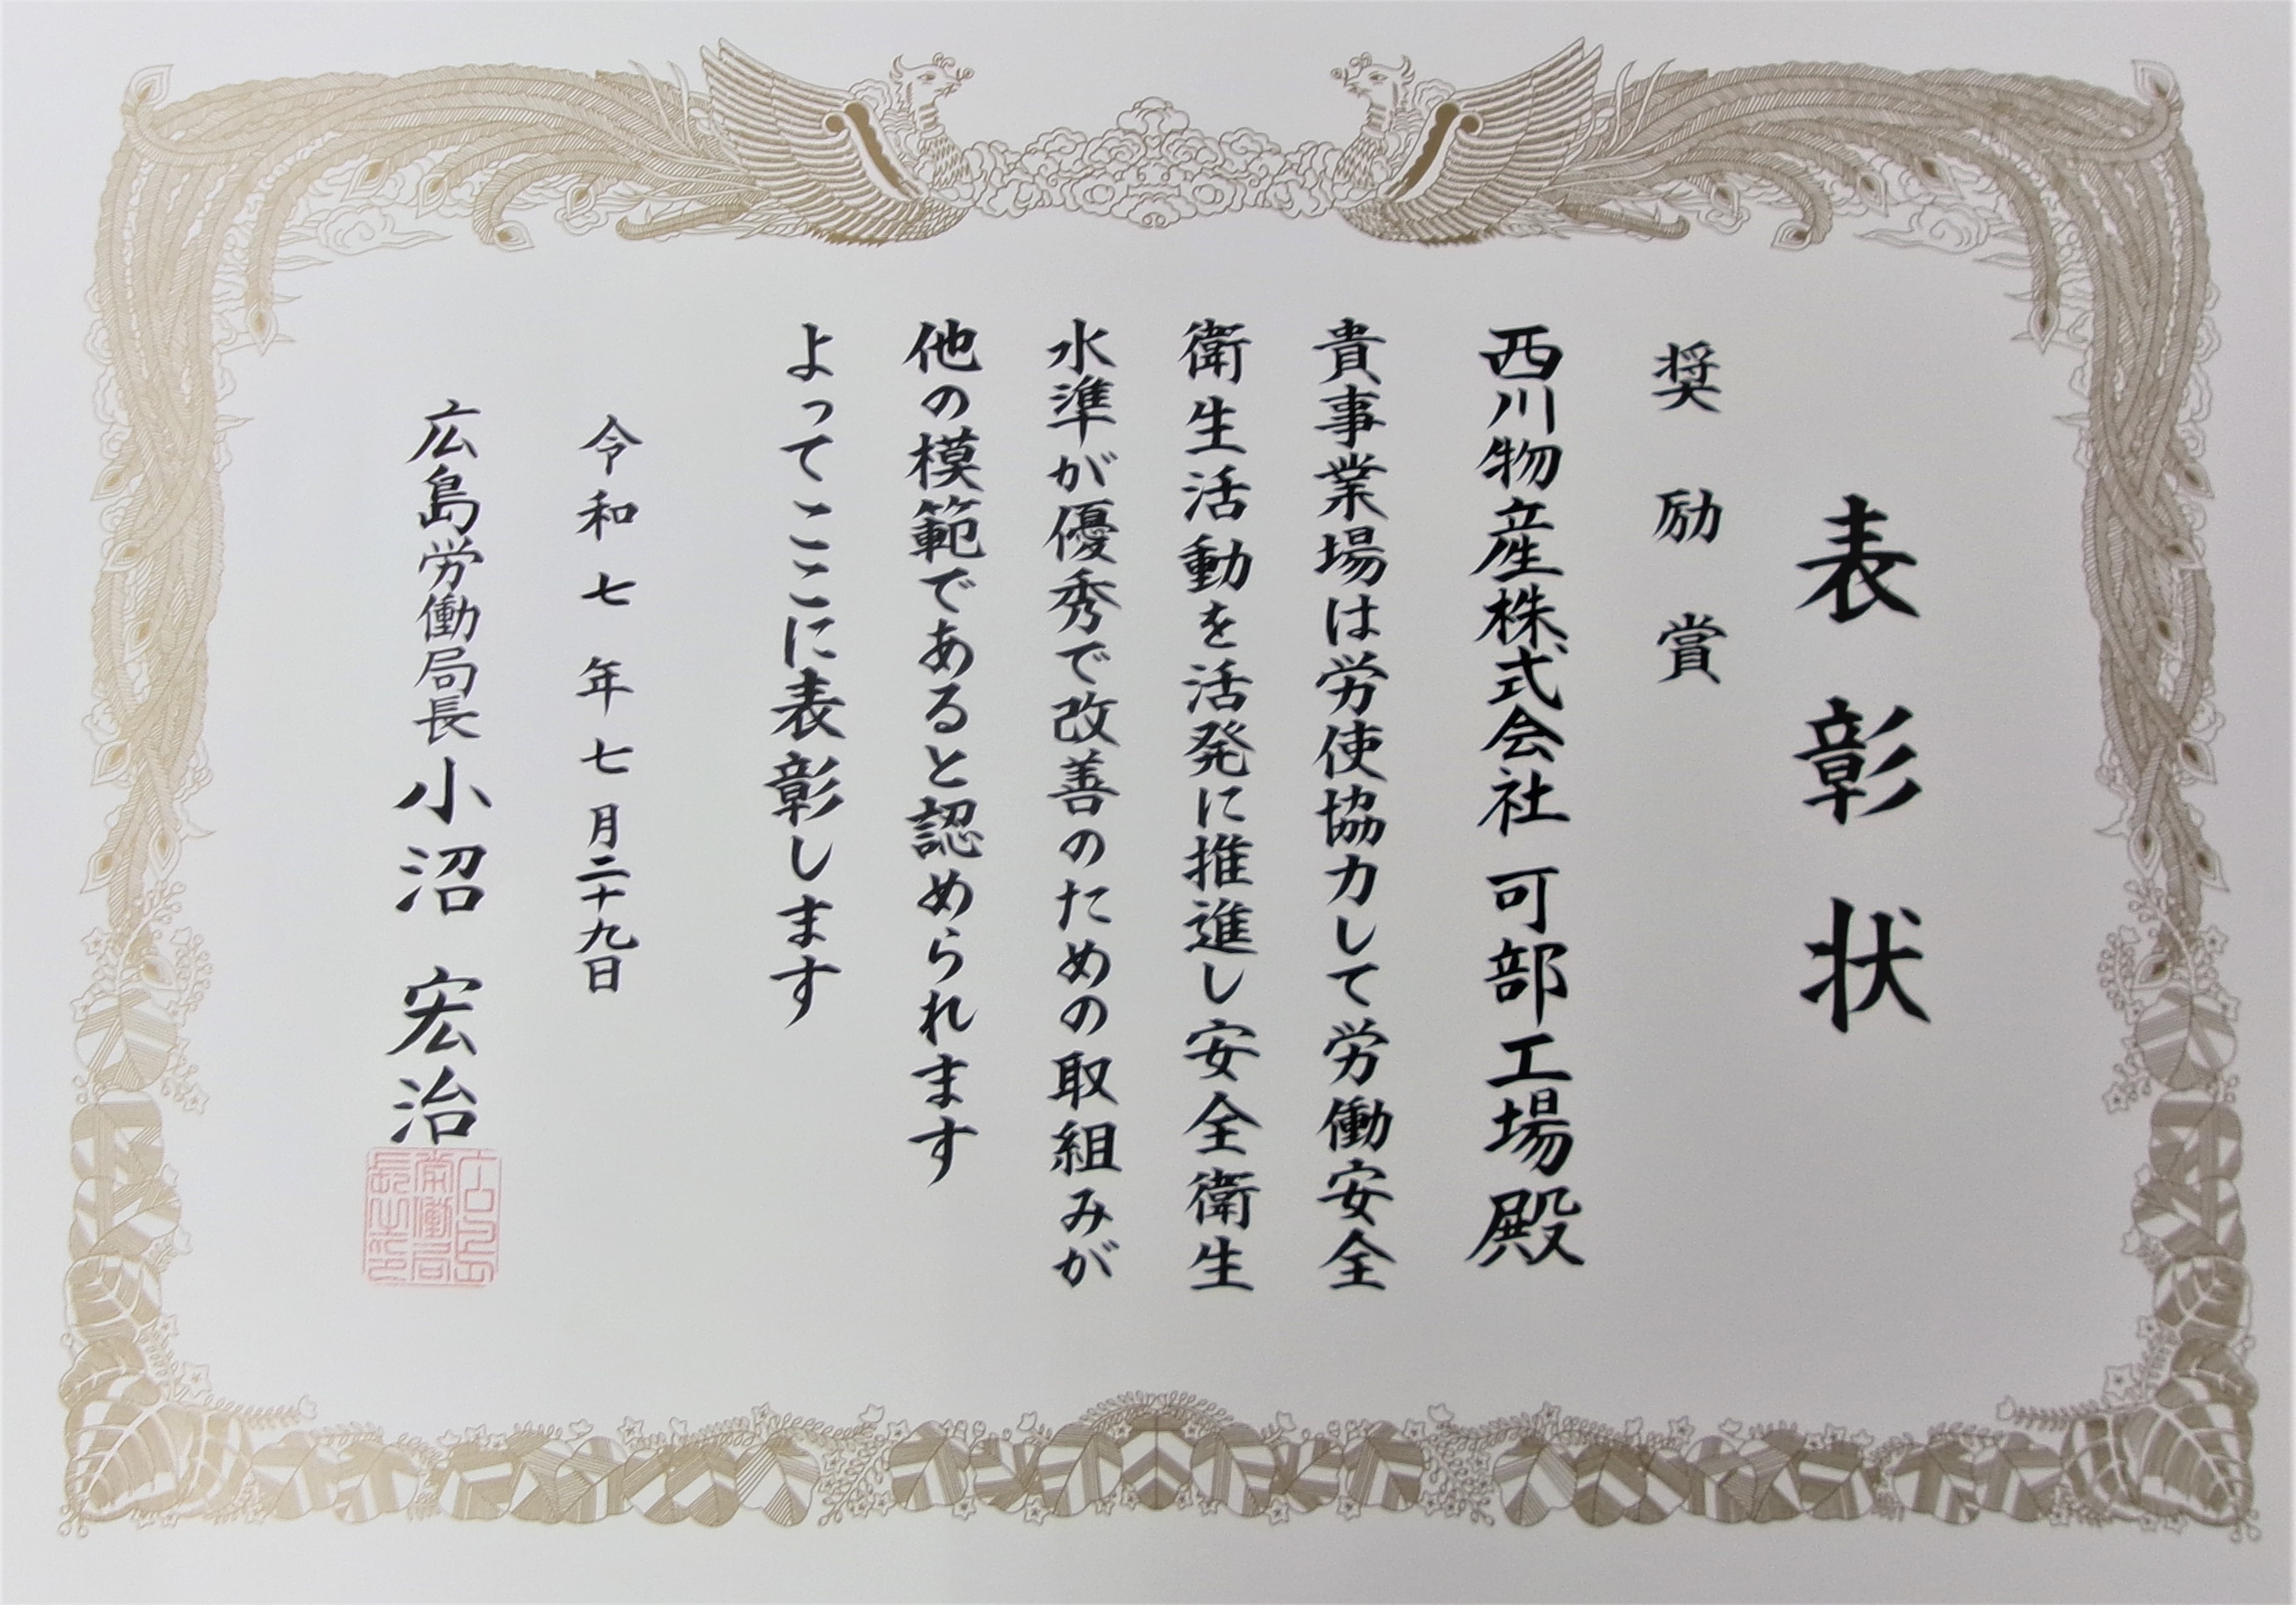 表彰状
奨励賞
西川物産株式会社 可部工場殿
貴事業場は労使協力して労働安全
衛生活動を活発に推進し安全衛生
水準が優秀で改善のための取組みが
他の模範であると認められます
よってここに表彰します
令和七年七月二十九日
広島労働局長 小沼宏治
広島労働局長之印